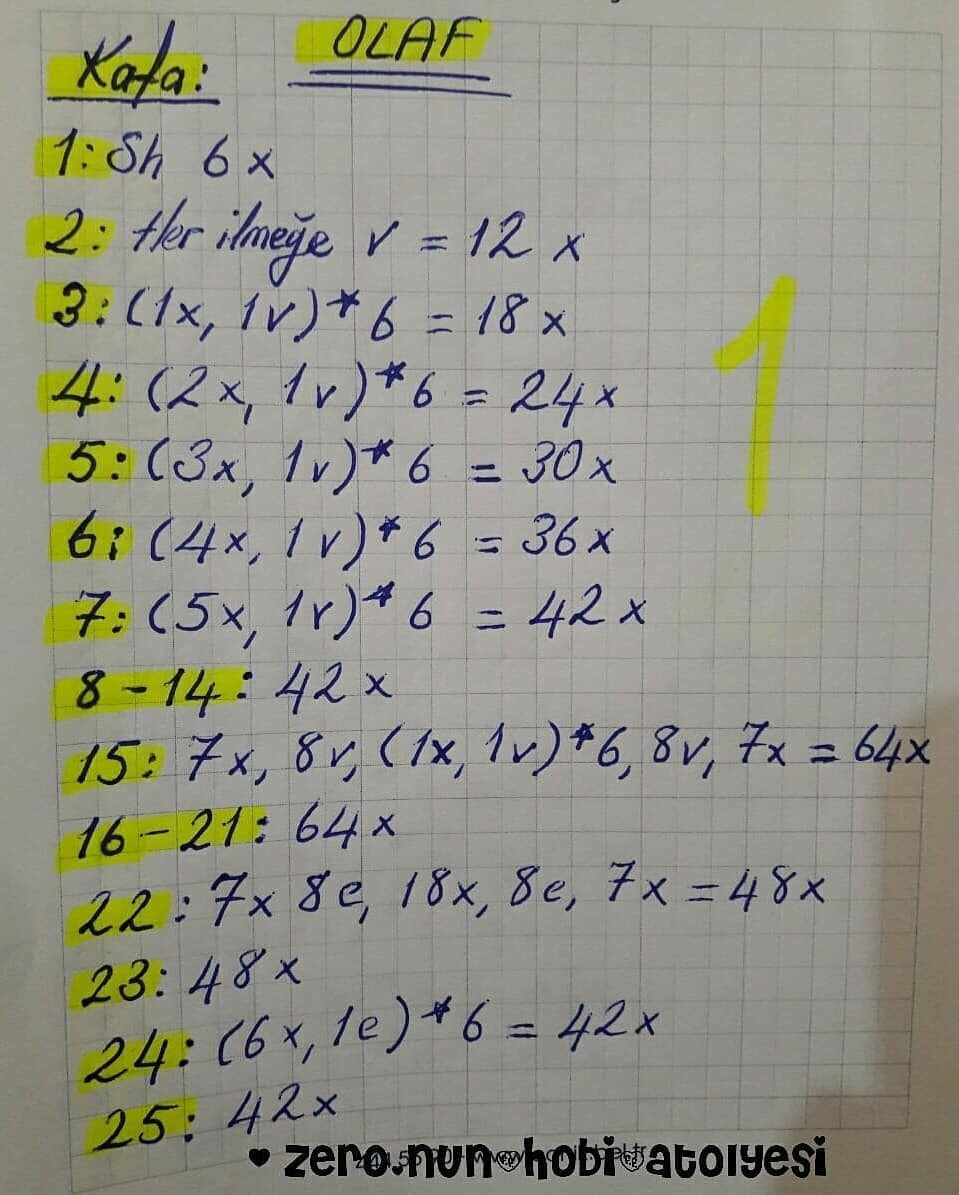 OLAF
Kafa:
1: Sh 6 x
2: Her ilmeğe v = 12 x
3: (1x, 1v)*6 = 18 x
4: (2x, 1v)*6 = 24x
5: (3x, 1v)*6 = 30x
6: (4x, 1v)*6 = 36x
7: (5x, 1v)*6 = 42x
8-14: 42x
15: 7x, 8v, (1x, 1v)*6, 8v, 7x = 64x
16-21: 64x
22: 7x 8e, 18x, 8e, 7x = 48x
23: 48x
24: (6x, 1e)*6 = 42x
25: 42x
1
♥ zero.nun hobi atolyesi